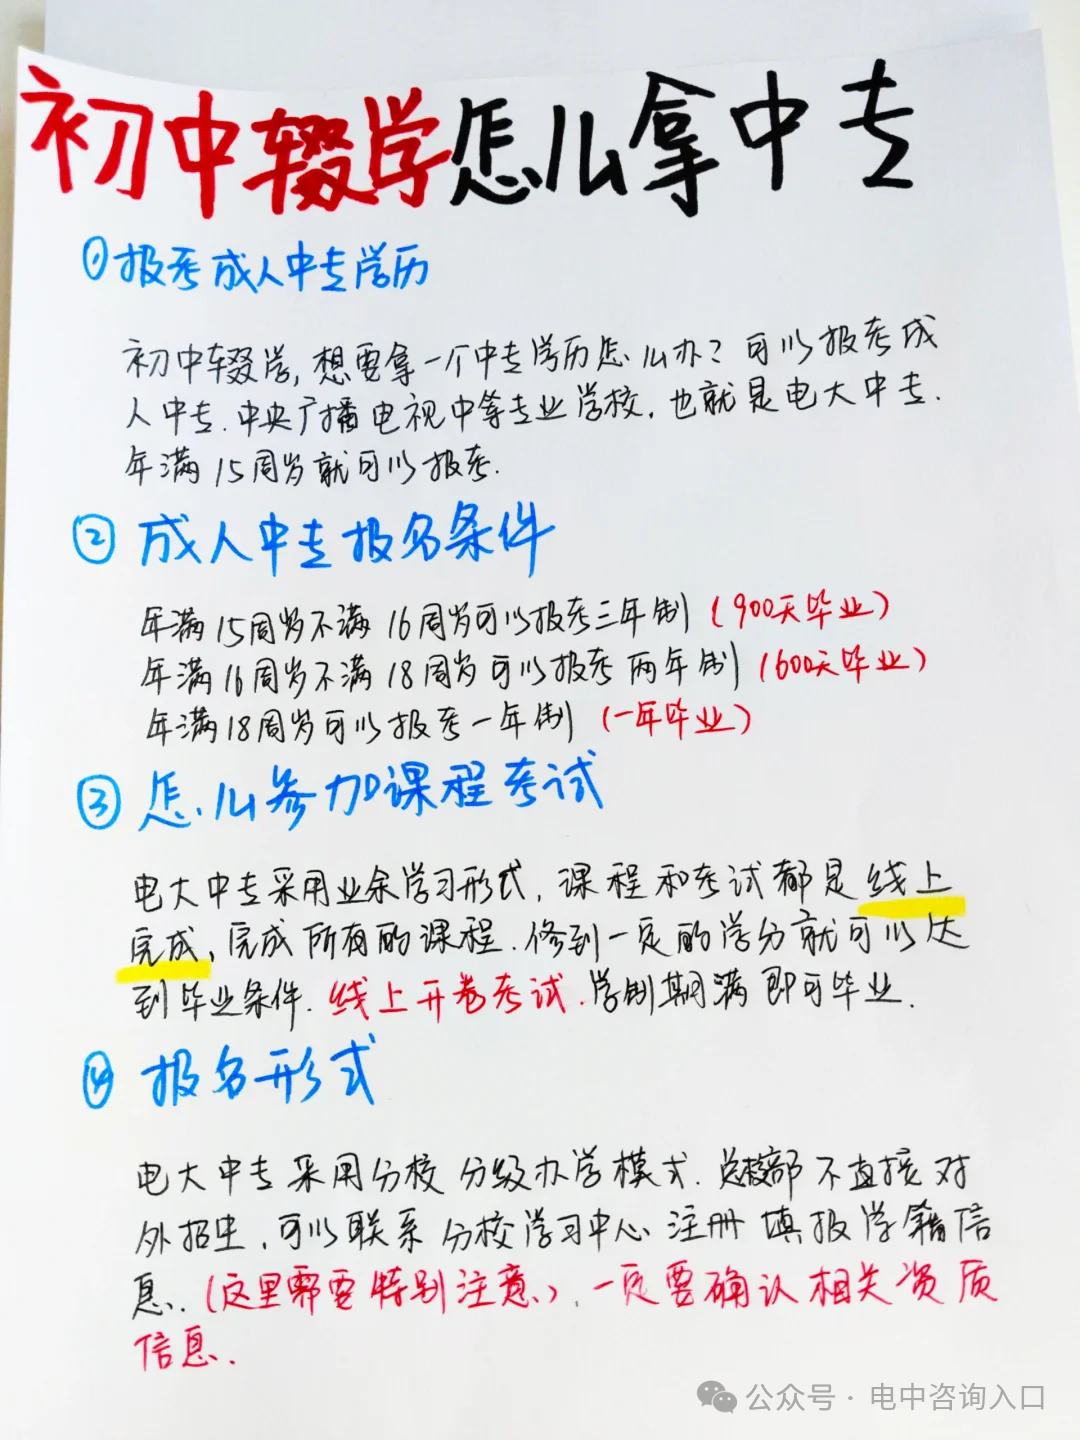 初中辍学怎么拿中专
①报考成人中专学历
初中辍学,想要拿一个中专学历怎么办?可以报考成
人中专.中央广播电视中等专业学校,也就是电大中专.
年满15周岁就可以报考.
②成人中专报名条件
年满15周岁不满16周岁可以报考三年制(900天毕业)
年满16周岁不满18周岁可以报考两年制(600天毕业)
年满18周岁可以报考一年制(一年毕业)
③怎么参加课程考试
电大中专采用业余学习形式,课程和考试都是线上
完成,完成所有的课程.修到一定的学分就可以达
到毕业条件.线上开卷考试.学制期满即可毕业.
④报名形式
电大中专采用分校分级办学模式.总校部不直接对
外招生,可以联系分校学习中心注册填报学籍信
息.(这里需要特别注意),一定要确认相关资质
信息.
公众号·电中咨询入口